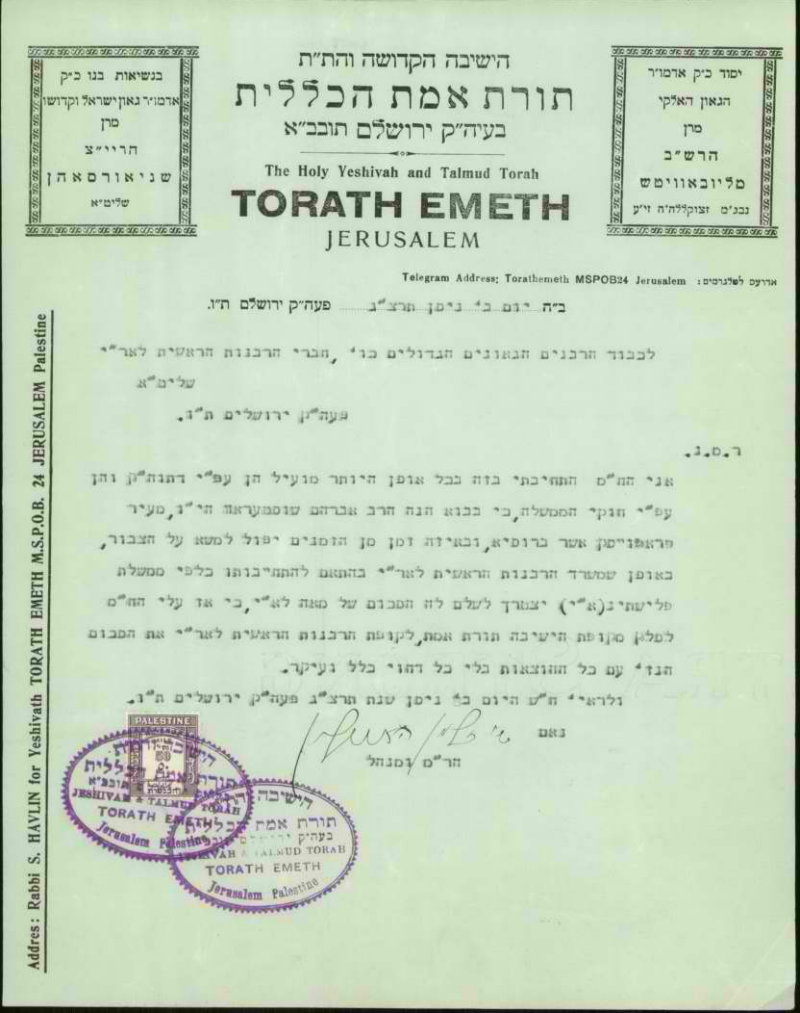 הישיבה הקדושה והת״ת
תורת אמת הכללית
בעיה״ק ירושלם תובב״א
The Holy Yeshivah and Talmud Torah
TORATH EMETH
JERUSALEM
יסוד כ״ק אדמו״ר
הגאון האלקי
מרן
הרש״ב
מליובאוויטש
נבג״מ זצוקללה״ה זי״ע
בנשיאות בנו כ״ק
אדמו״ר גאון ישראל וקדושו
מרן
הריי״צ
שניאורסאהן
שליט״א
Telegram Address; Torathemeth MSPOB24 Jerusalem : אדרעס לטלגרמים
ב״ה יום ב׳ ניסן תרצ״ג פעה״ק ירושלם ת״ו.
לכבוד הרבנים הגאונים הגדולים כו׳, חברי הרבנות הראשית לאר״י
שליט״א
פעה״ק ירושלים ת״ו.
אני הח״מ התחיבתי בזה בכל אופן היותר מועיל הן עפ״י דתוה״ק והן
עפ״י חוקי הממשלה, כי בבוא הנה הרב אברהם הי״ו, מעיר
אשר ברוסיא, ובאיזה זמן מן הזמנים יפול למשא על הצבור,
באופן שמשרד הרבנות הראשית לאר״י בהתאם להתחיבותו כלפי ממשלת
פלישתינ(א״י) יצטרך לשלם לה הסכום של מאה לא״י, כי אז עלי הח״מ
לסלק מקופת הישיבה תורת אמת, לקופת הרבנות הראשית לאר״י את הסכום
הנז׳ עם כל ההוצאות בלי כל דחוי כלל ועיקר.
ולראי׳ ח״ש היום ב׳ ניסן שנת תרצ״ג פעה״ק ירושלים ת״ו.
נאם
הר״מ ומנהל
PALESTINE
50
הישיבה
תורת אמת הכללית
תובב״א
JESHIVAH & TALMUD TORAH
TORATH EMETH
Jerusalem Palestine
הישיבה
תורת אמת הכללית
בעיה״ק
TALMUD TORAH
TORATH EMETH
Jerusalem Palestine
Addres: Rabbi S. HAVLIN for Yeshivath TORATH EMETH M.S.P.O.B. 24 JERUSALEM Palestine